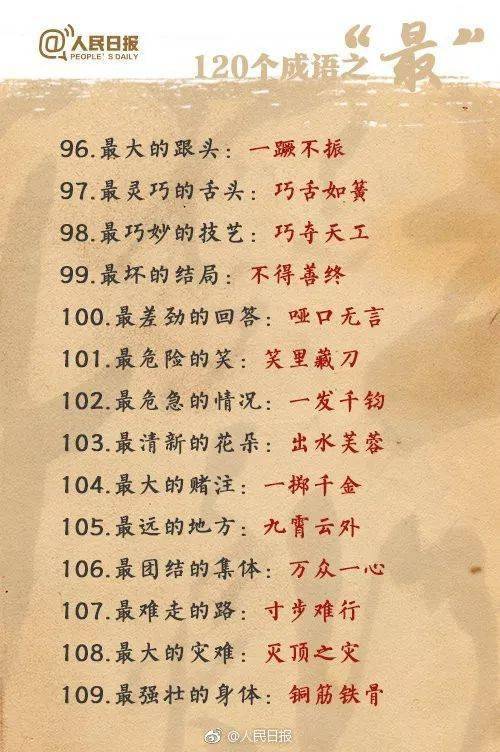 @人民日报
PEOPLE'S DAILY
120个成语之“最”
96.最大的跟头：一蹶不振
97.最灵巧的舌头：巧舌如簧
98.最巧妙的技艺：巧夺天工
99.最坏的结局：不得善终
100.最差劲的回答：哑口无言
101.最危险的笑：笑里藏刀
102.最危急的情况：一发千钧
103.最清新的花朵：出水芙蓉
104.最大的赌注：一掷千金
105.最远的地方：九霄云外
106.最团结的集体：万众一心
107.最难走的路：寸步难行
108.最大的灾难：灭顶之灾
109.最强壮的身体：铜筋铁骨
@人民日报